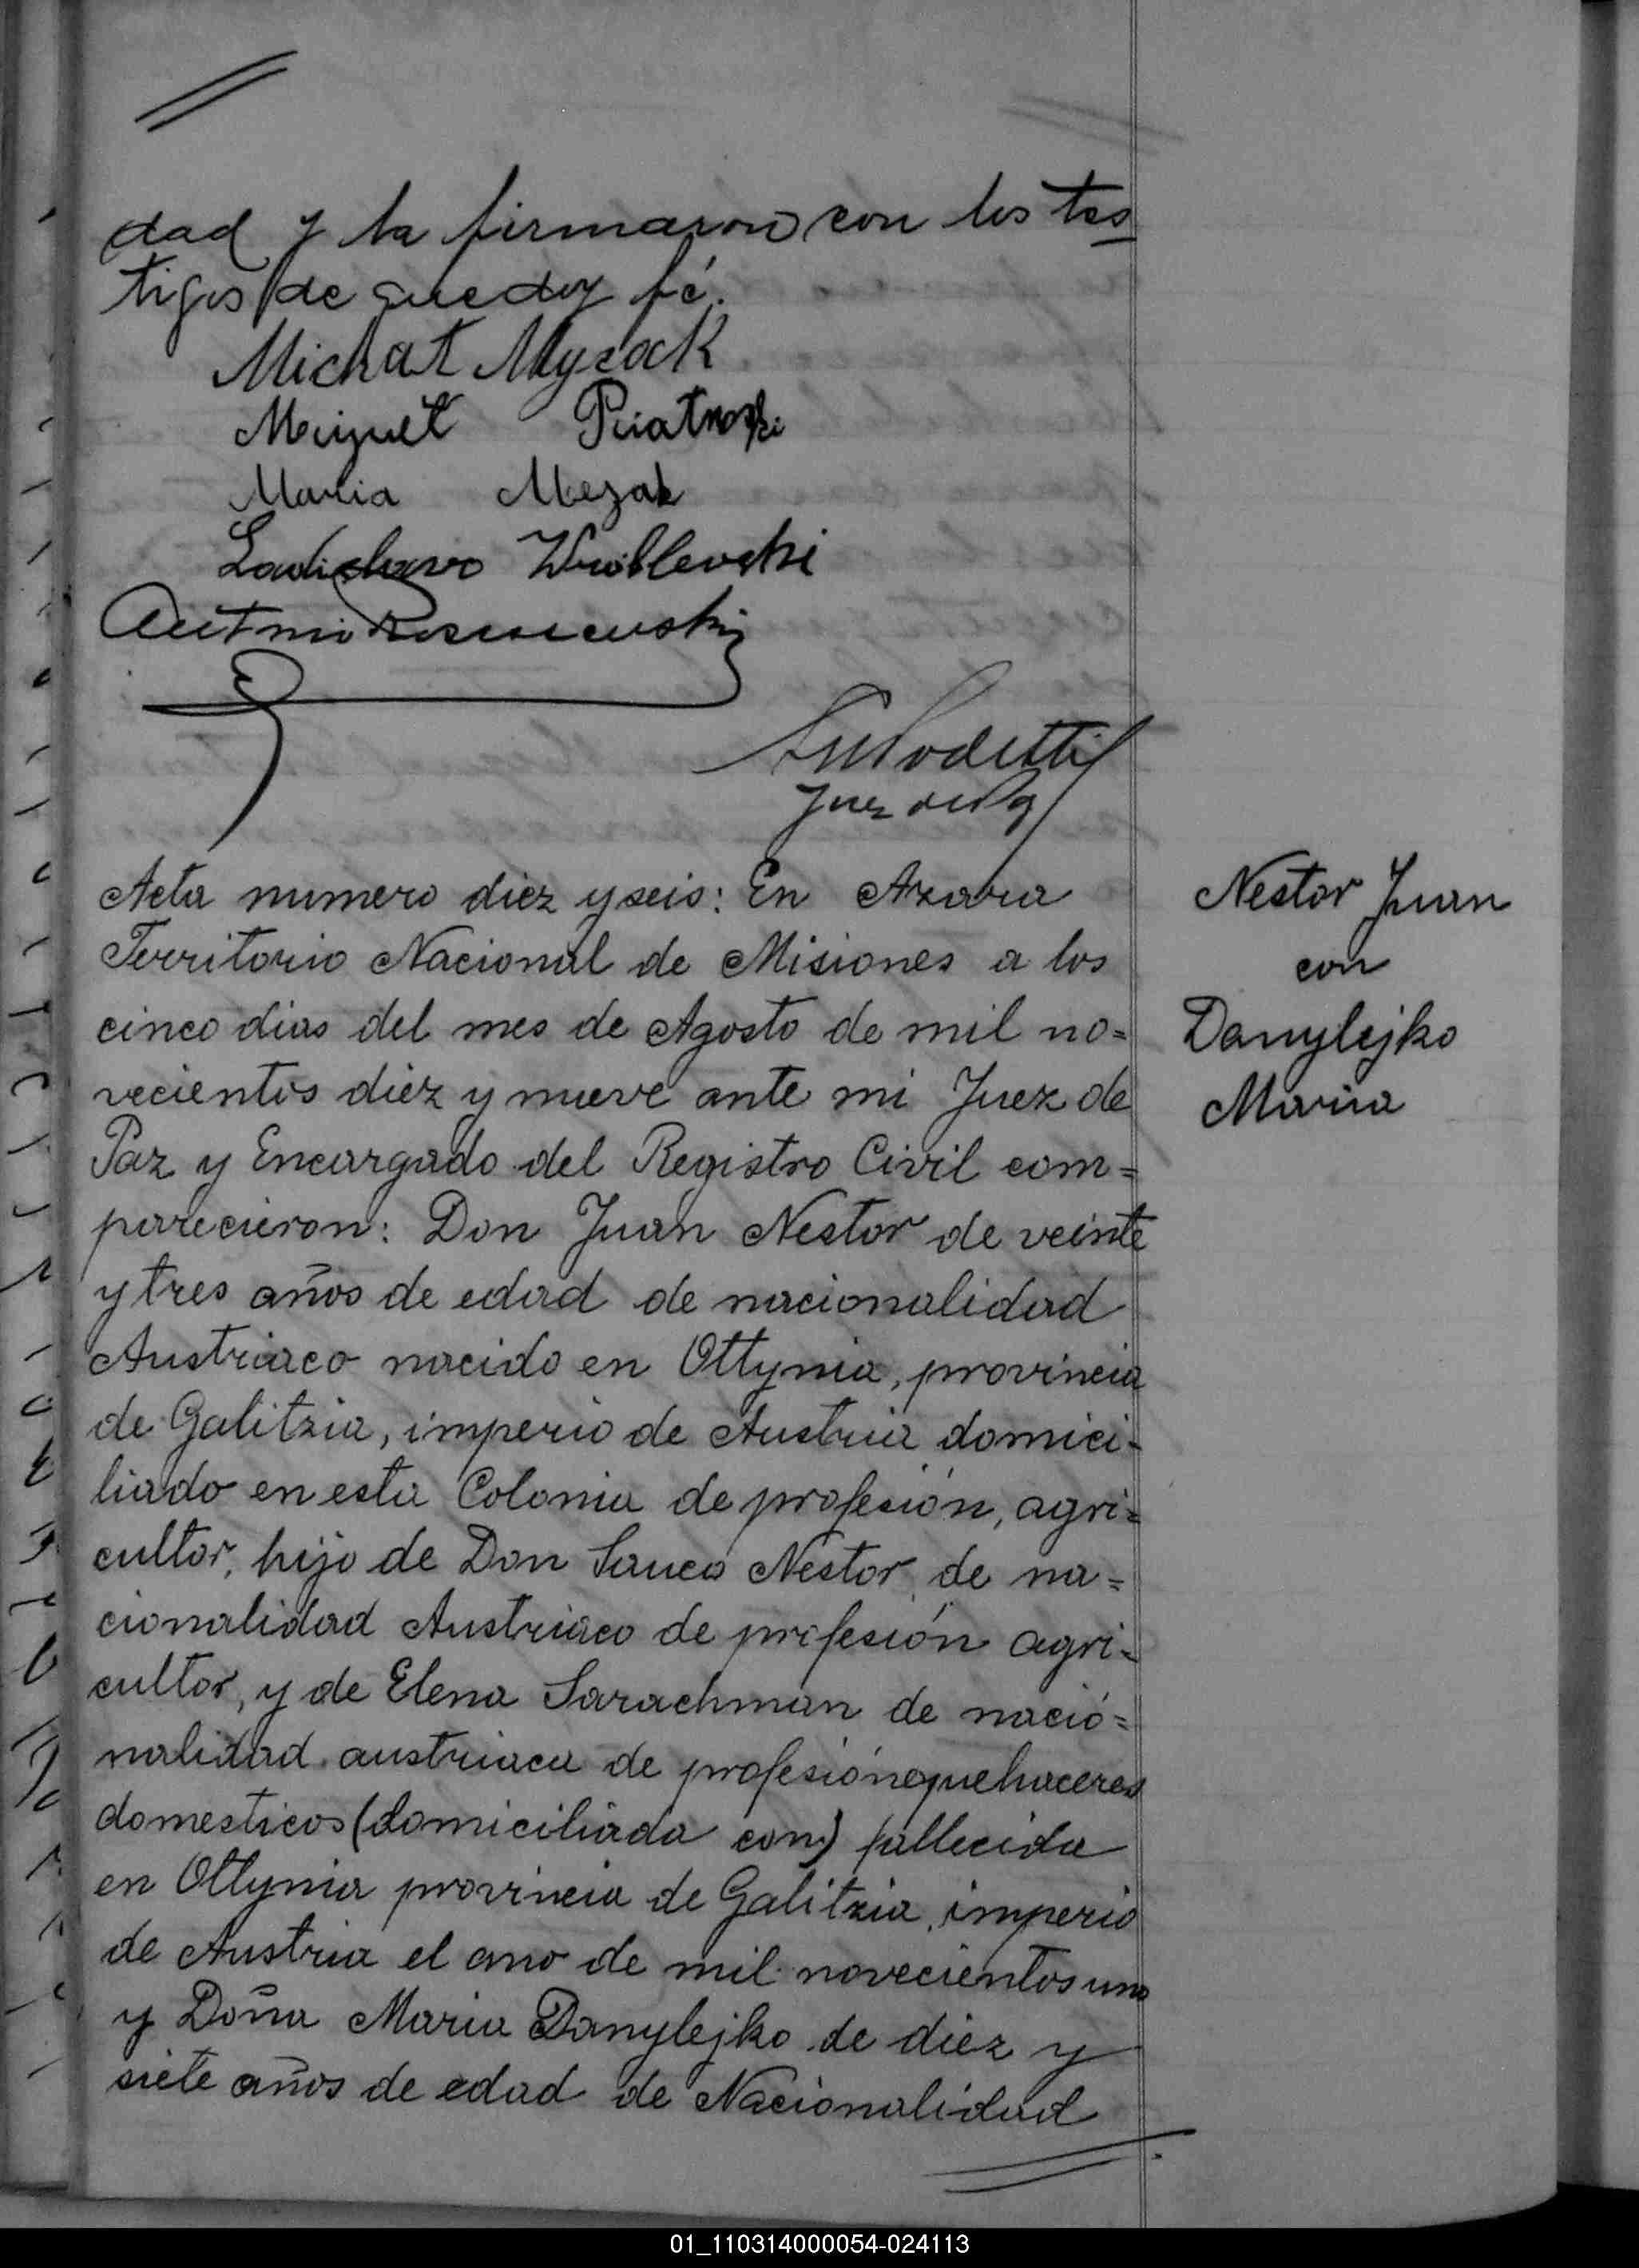 dad y la firmaron con los tes
tigos de que doy fé.
Michał Myzack
Miguel Piatnoski
Maria Mezak
Ladislavo Wróblevski
Antonio
Juez de Paz
Acta numero diez y seis: En Azara
Territorio Nacional de Misiones a los
cinco dias del mes de Agosto de mil no=
vecientos diez y nueve ante mi Juez de
Paz y Encargado del Registro Civil com=
parecieron: Don Juan Nestor de veinte
y tres años de edad de nacionalidad
Austriaco nacido en Ottynia, provincia
de Galitzia, imperio de Austria domici-
liado en esta Colonia de profesión, agri=
cultor, hijo de Don Nestor, de na=
cionalidad Austriaco de profesión agri=
cultor, y de Elena Sarachman de nació=
nalidad austriaca de profesión quehaceres
domesticos (domiciliada con) fallecida
en Ottynia provincia de Galitzia, imperio
de Austria el ano de mil novecientos uno
y Doña Maria Danylejko de diez y
siete años de edad de Nacionalidad
Nestor Juan
con
Danylejko
Maria
01_110314000054-024113